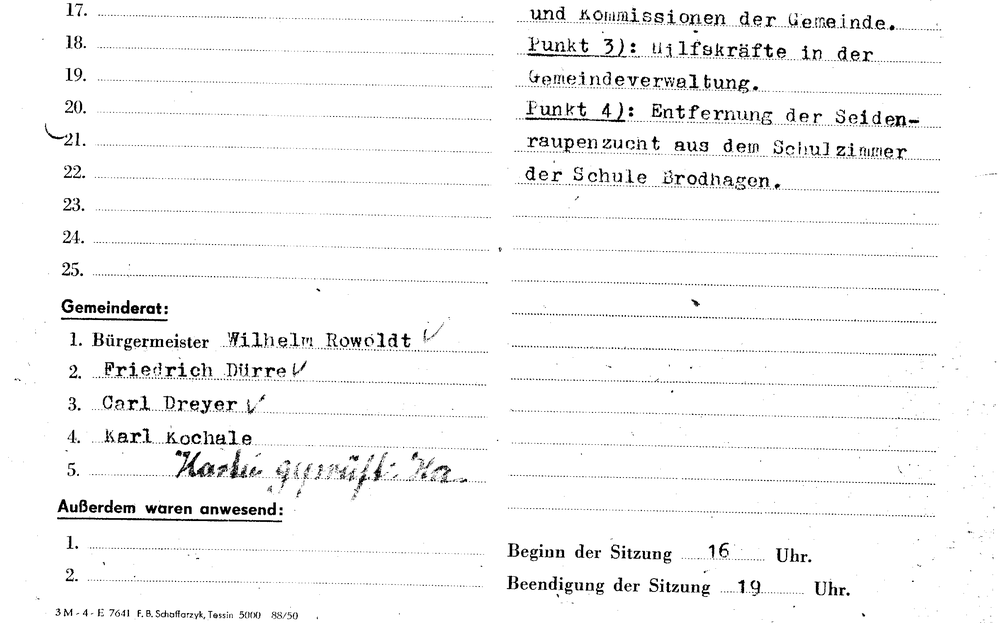 17.
18.
19.
20.
21.
22.
23.
24.
25.
Gemeinderat:
1. Bürgermeister Wilhelm Rowoldt
2. Friedrich Dürre
3. Carl Dreyer
4. Karl Kochale
5. geprüft: Ha.
Außerdem waren anwesend:
1.
2.
3 M - 4 - E 7641 F. B. Schaffarzyk, Tessin 5000 88/50
und Kommissionen der Gemeinde.
Punkt 3): Hilfskräfte in der
Gemeindeverwaltung.
Punkt 4): Entfernung der Seiden-
raupenzucht aus dem Schulzimmer
der Schule Brodhagen.
Beginn der Sitzung 16 Uhr.
Beendigung der Sitzung 19 Uhr.